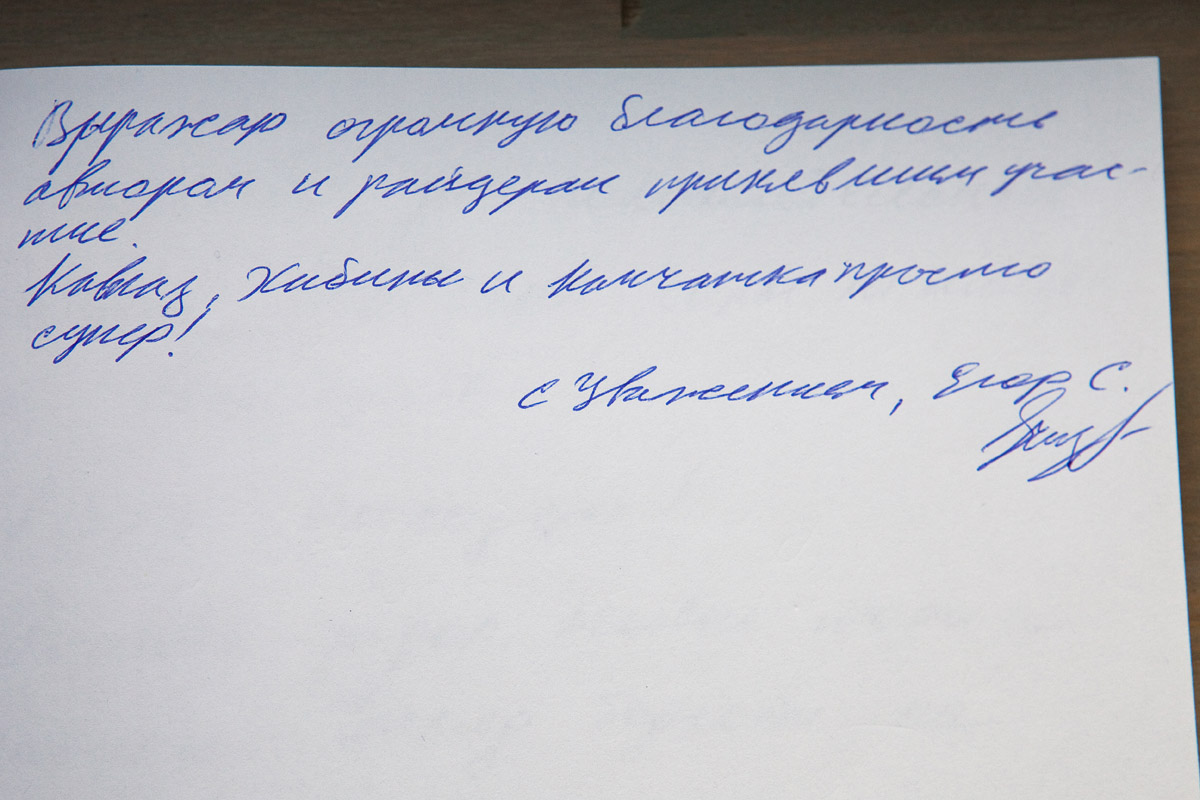 Выражаю огромную благодарность
авторам и райдерам принявшим учас-
тие.
Кавказ, Хибины и Камчатка просто
супер!
с Уважением, Егор С.